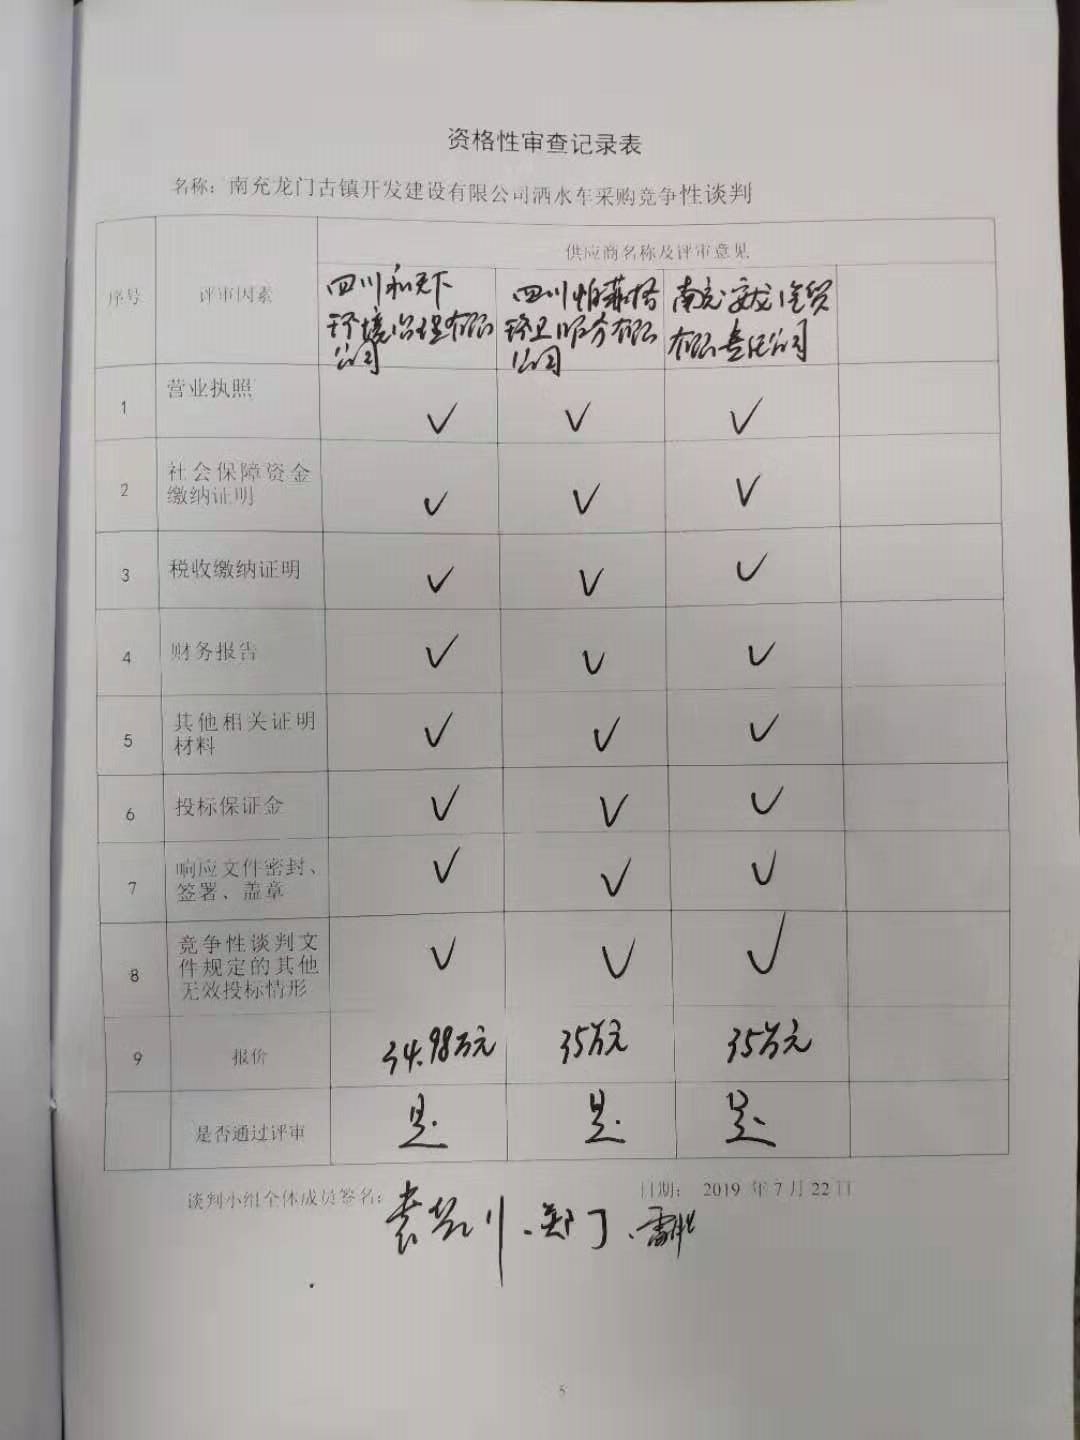 资格性审查记录表
名称：南充龙门古镇开发建设有限公司洒水车采购竞争性谈判
序号 评审因素 供应商名称及评审意见
四川和天下
环境治理有限
公司
四川帕菲格
环卫服务有限
公司
南充安龙汽贸
有限责任公司
1 营业执照 ✓ ✓ ✓
2 社会保障资金
缴纳证明 ✓ ✓ ✓
3 税收缴纳证明 ✓ ✓ ✓
4 财务报告 ✓ ✓ ✓
5 其他相关证明
材料 ✓ ✓ ✓
6 投标保证金 ✓ ✓ ✓
7 响应文件密封、
签署、盖章 ✓ ✓ ✓
8 竞争性谈判文
件规定的其他
无效投标情形 ✓ ✓ ✓
9 报价 34.98万元 35万元 35万元
是否通过评审 是. 是. 是.
谈判小组全体成员签名： 日期： 2019 年 7 月 22 日
5